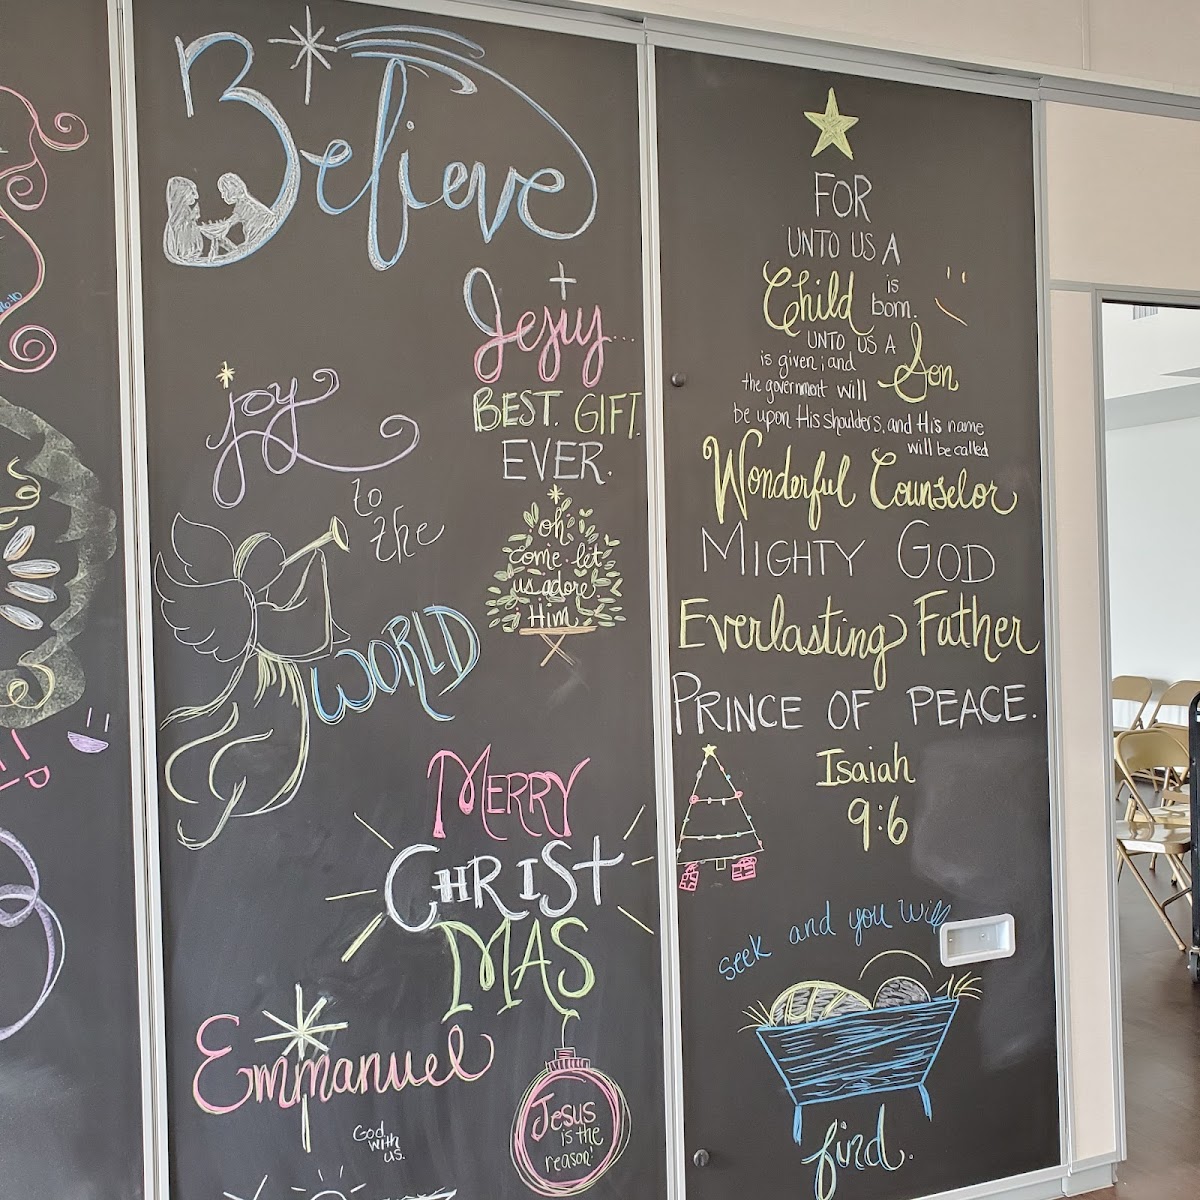 Believe
Jesus...
BEST. GIFT.
EVER.
joy
to
the
WORLD
oh
come let
us adore
Him
MERRY
CHRIST
MAS
Emmanuel
God
with
us.
Jesus
is the
reason!
FOR
UNTO US A
Child is
born.
UNTO US A
Son
is given; and
the government will
be upon His shoulders, and His name
will be called
Wonderful Counselor
MIGHTY GOD
Everlasting Father
PRINCE OF PEACE.
Isaiah
9:6
seek and you will
find.